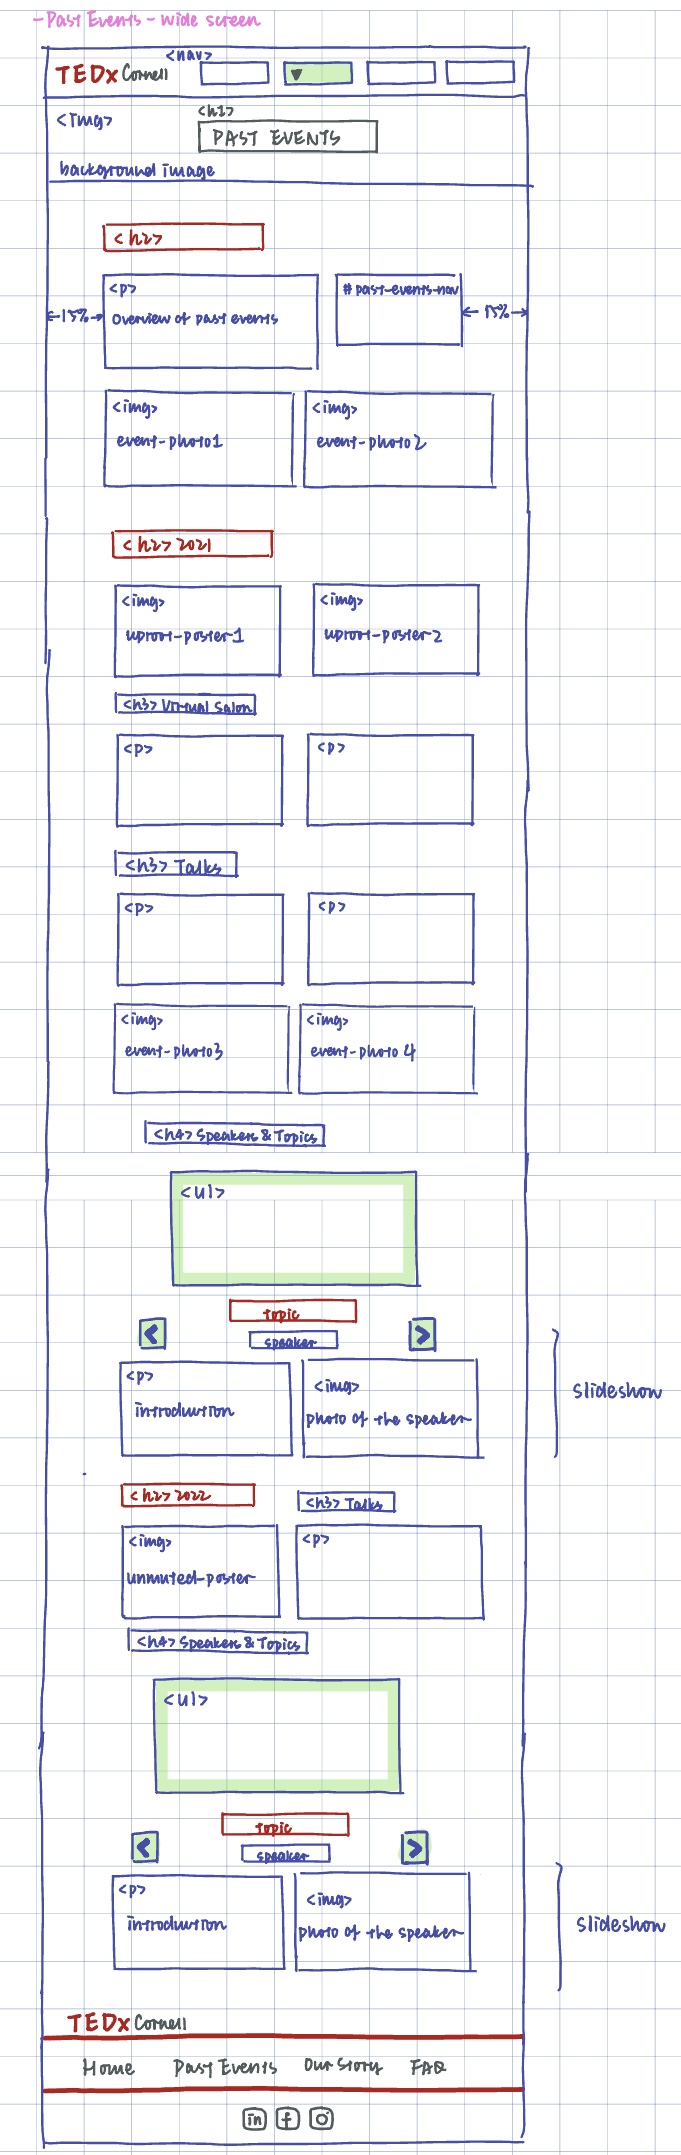 - Past Events - wide screen
<nav>
TEDx Cornell
▼
<img>
<h1>
PAST EVENTS
background image
<h2>
<p>
# past-events-nav
←15%→
overview of past events
←15%→
<img>
event-photo1
<img>
event-photo2
<h2> 2021
<img>
uproot-poster1
<img>
uproot-poster2
<h3> Virtual Salon
<p>
<p>
<h3> Talks
<p>
<p>
<img>
event-photo3
<img>
event-photo 4
<h4> Speakers & Topics
<ul>
topic
<
speaker
>
<p>
introduction
<img>
photo of the speaker
slideshow
<h2> 2022
<h3> Talks
<img>
unmuted-poster
<p>
<h4> Speakers & Topics
<ul>
topic
<
speaker
>
<p>
introduction
<img>
photo of the speaker
slideshow
TEDx Cornell
Home Past Events Our Story FAQ
in f